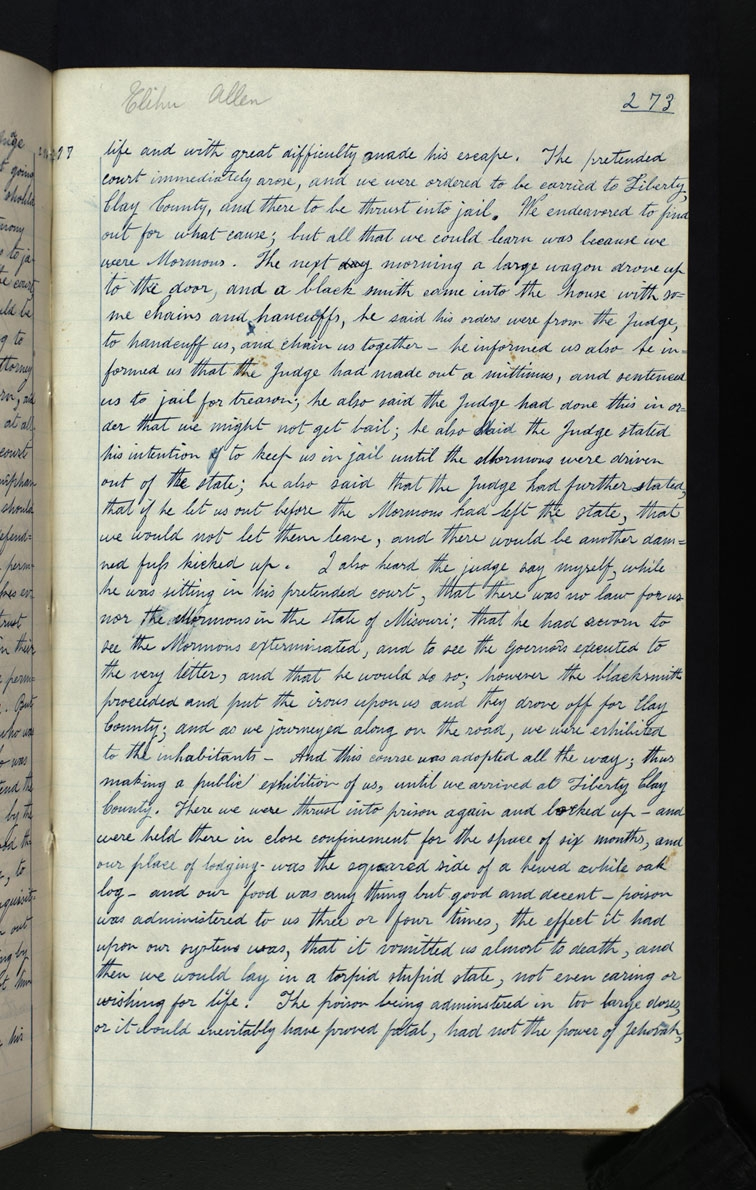 Elihu Allen
273
life and with great difficulty made his escape. The pretended
court immediately arose, and we were ordered to be carried to Liberty,
Clay County, and there to be thrust into jail. We endeavored to find
out for what cause; but all that we could learn was because we
were Mormons. The next day morning a large wagon drove up
to the door, and a black smith came into the house with so=
me chains and hancuffs, he said his orders were from the Judge,
to handcuff us, and chain us together – he informed us also he in=
formed us that the Judge had made out a mittimus, and sentenced
us to jail for treason; he also said the Judge had done this in or=
der that we might not get bail; he also said the Judge stated
his intention of to keep us in jail until the Mormons were driven
out of the state; he also said that the Judge had further stated,
that if he let us out before the Mormons had left the state, that
we would not let them leave, and there would be another dam=
ned fuss kicked up. I also heard the judge say myself, while
he was sitting in his pretended court, that there was no law for us
nor the Mormons in the state of Misouri; that he had sworn to
see the Mormons exterminated, and to see the Governors executed to
the very letter, and that he would do so; however the blacksmith
proceeded and put the irons upon us and they drove off for Clay
County; and as we journeyed along on the road, we were exhibited
to the inhabitants – And this course was adopted all the way; thus
making a public exhibition of us, until we arrived at Liberty Clay
County. There we were thrust into prison again and locked up – and
were held there in close confinement for the space of six months, and
our place of lodging was the squared side of a hewed white oak
log – and our food was any thing but good and decent – poison
was administered to us three or four times, the effect it had
upon our systems was, that it vomitted us almost to death, and
then we would lay in a torpid stupid state, not even caring or
wishing for life. The poison being adminstered in too large doses,
or it would inevitably have proved fatal, had not the power of Jehovah,